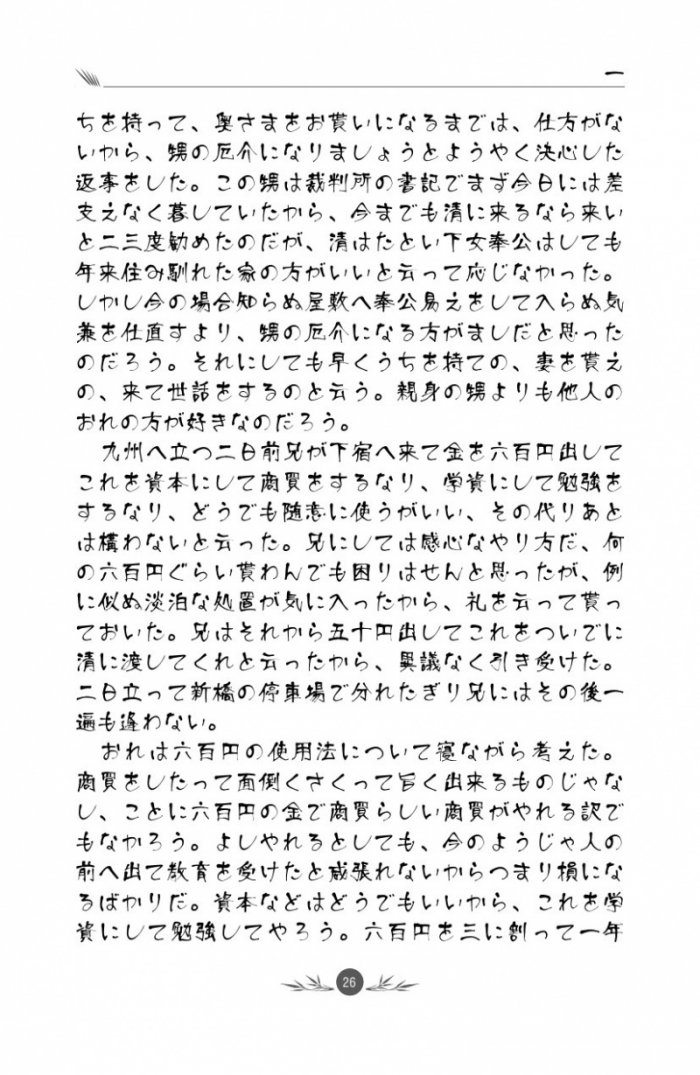 一
ちを持って、奥さまをお貰いになるまでは、仕方がな
いから、甥の厄介になりましょうとようやく決心した
返事をした。この甥は裁判所の書記でまず今日には差
支えなく暮していたから、今までも清に来るなら来い
と二三度勧めたのだが、清はたとい下女奉公はしても
年来住み馴れた家の方がいいと云って応じなかった。
しかし今の場合知らぬ屋敷へ奉公易えをして入らぬ気
兼を仕直すより、甥の厄介になる方がましだと思った
のだろう。それにしても早くうちを持ての、妻を貰え
の、来て世話をするのと云う。親身の甥よりも他人の
おれの方が好きなのだろう。
九州へ立つ二日前兄が下宿へ来て金を六百円出して
これを資本にして商買をするなり、学資にして勉強を
するなり、どうでも随意に使うがいい、その代りあと
は構わないと云った。兄にしては感心なやり方だ、何
の六百円ぐらい貰わんでも困りはせんと思ったが、例
に似ぬ淡泊な処置が気に入ったから、礼を云って貰っ
ておいた。兄はそれから五十円出してこれをついでに
清に渡してくれと云ったから、異議なく引き受けた。
二日立って新橋の停車場で分れたぎり兄にはその後一
遍も逢わない。
おれは六百円の使用法について寝ながら考えた。
商買をしたって面倒くさくって旨く出来るものじゃな
し、ことに六百円の金で商買らしい商買がやれる訳で
もなかろう。よしやれるとしても、今のようじゃ人の
前へ出て教育を受けたと威張れないからつまり損にな
るばかりだ。資本などはどうでもいいから、これを学
資にして勉強してやろう。六百円を三に割って一年
26